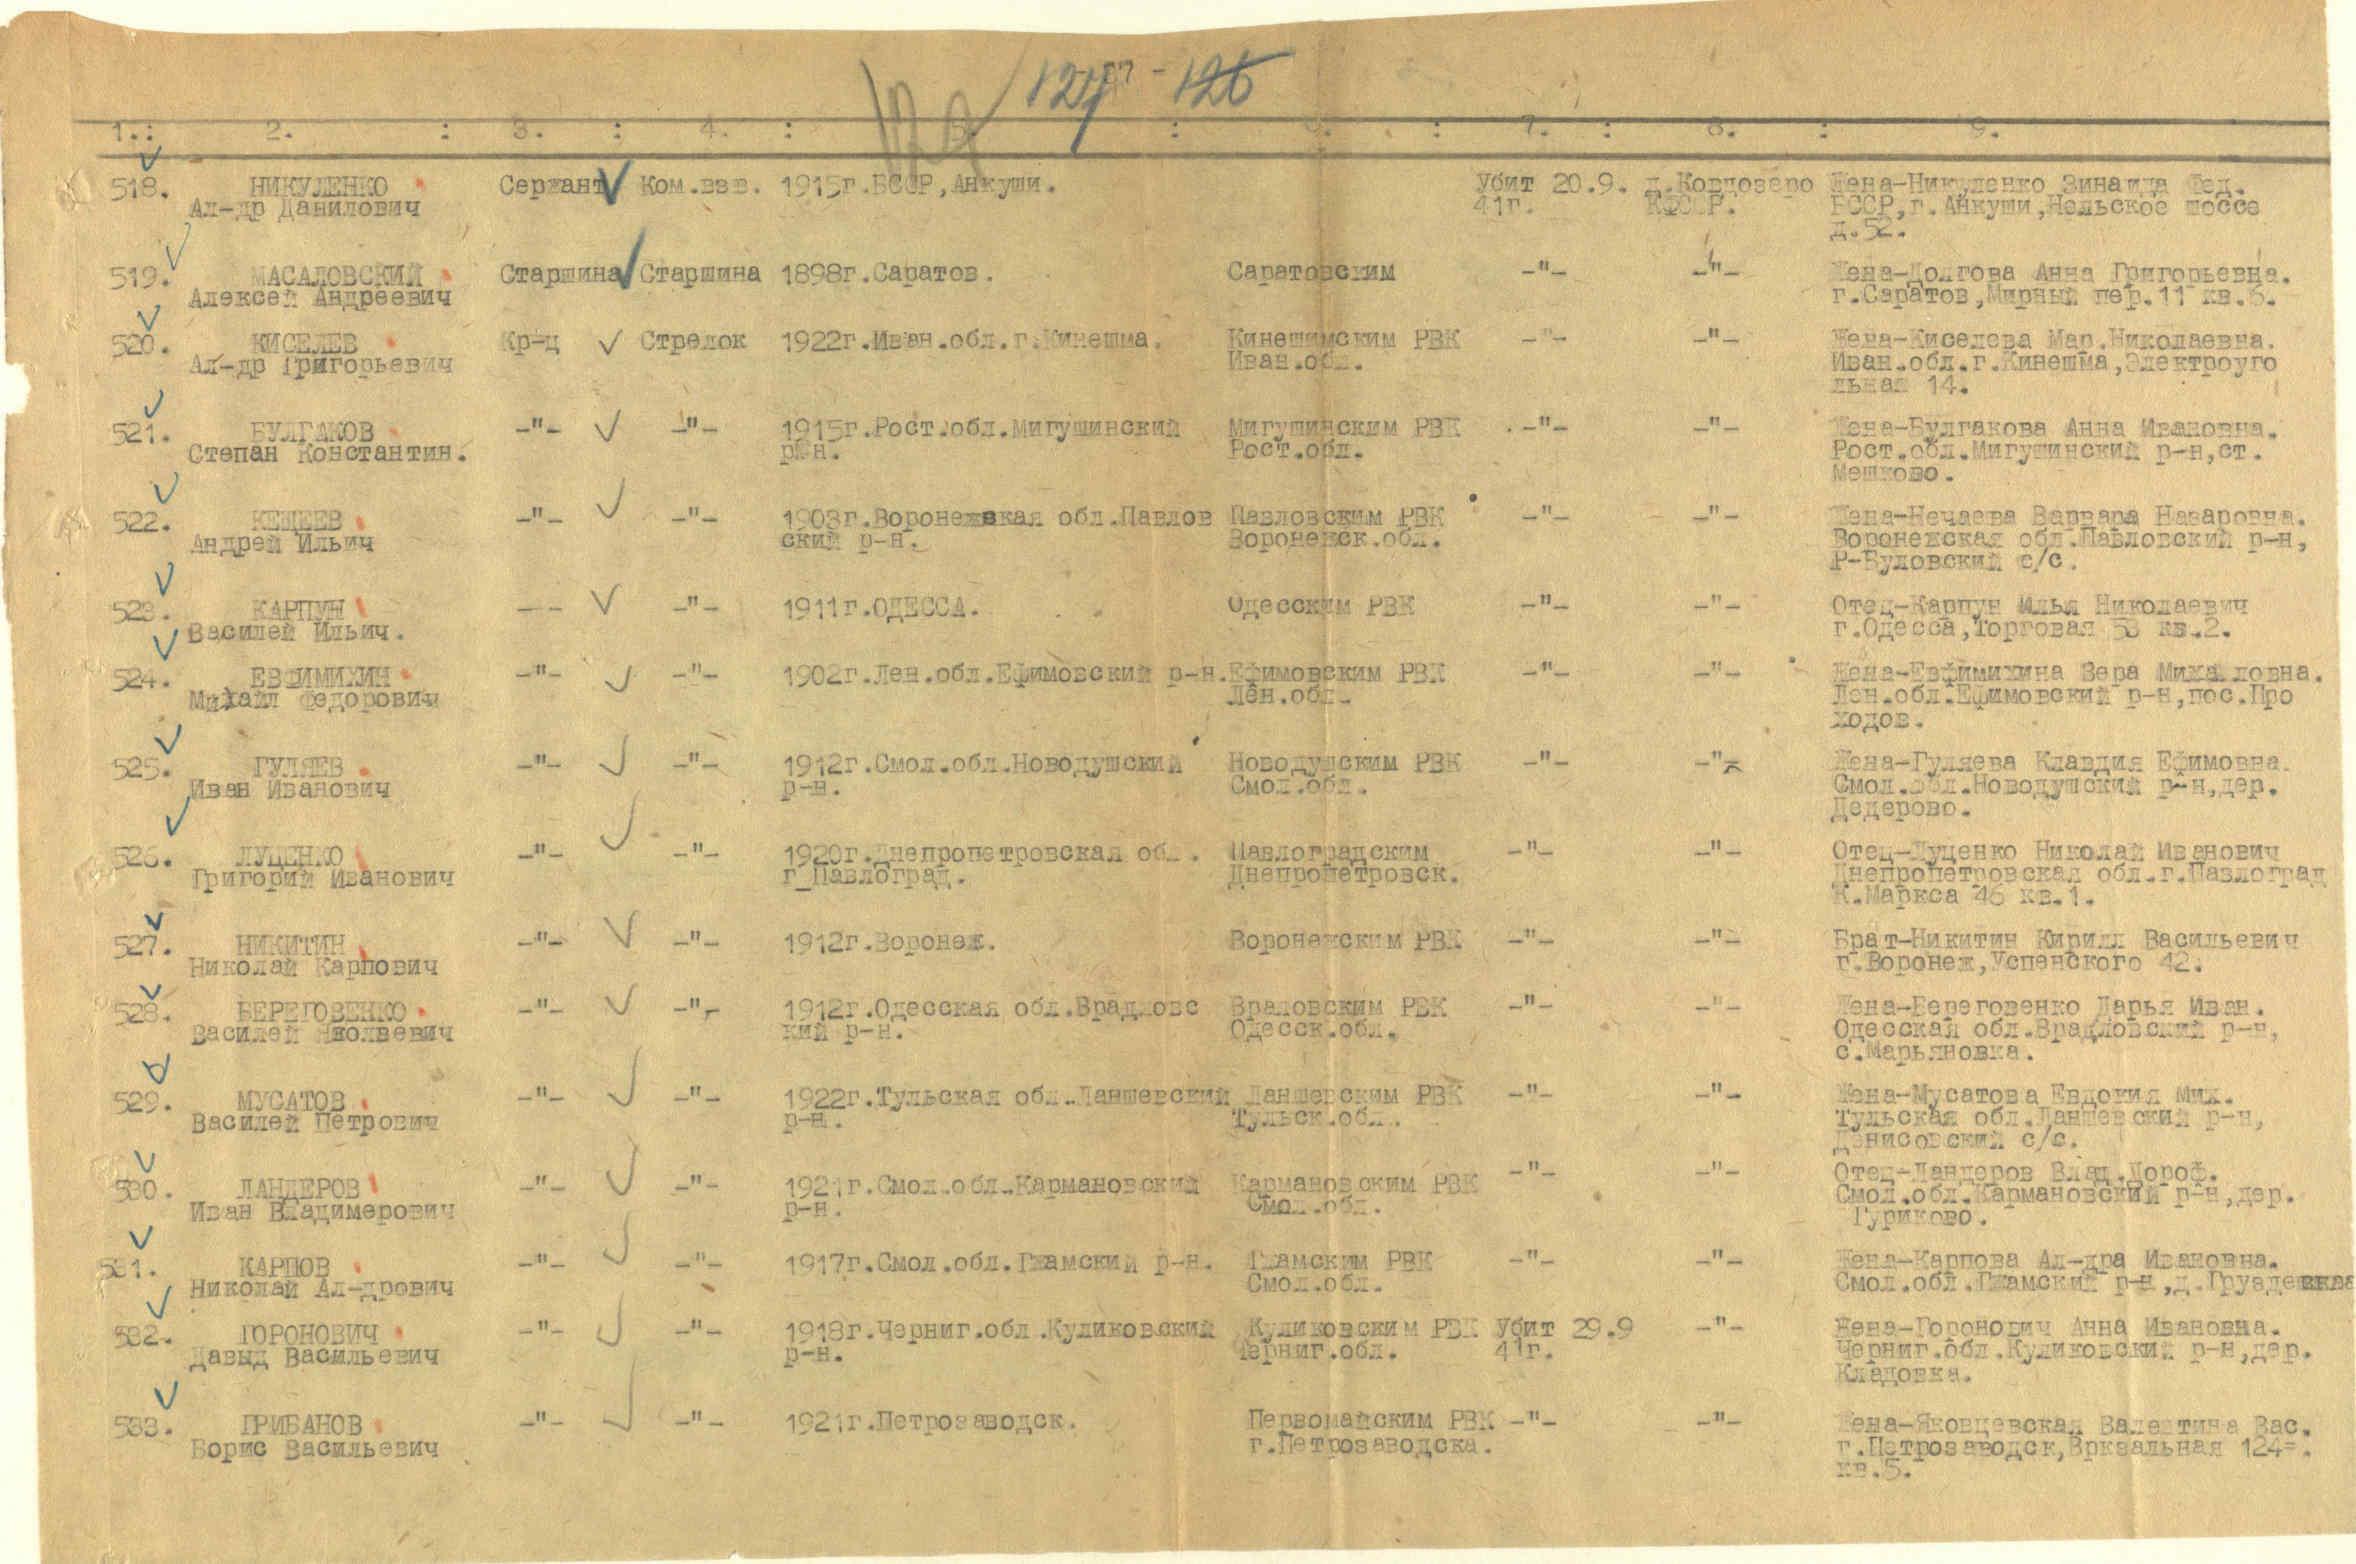 127 - 126
1.: 2. : 3. : 4. : : 6. : 7. : 8. : 9.
518. НИКУЛЕНКО Сержант Ком.взв. 1915г.БССР,Анкуши. Убит 20.9. д.Ковдозеро Жена-Никуленко Зинаида Фед.
Ал-др Данилович 41г. КФССР. БССР,г.Анкуши,Нельское шоссе
д.52.
519. МАСАЛОВСКИЙ Старшина Старшина 1898г.Саратов. Саратовским -"- -"- Жена-Долгова Анна Григорьевна.
Алексей Андреевич г.Саратов,Мирный пер.11 кв.6.
520. КИСЕЛЕВ Кр-ц Стрелок 1922г.Иван.обл.г.Кинешма. Кинешимским РВК -"- -"- Жена-Киселева Мар.Николаевна.
Ал-др Григорьевич Иван.обл. Иван.обл.г.Кинешма,Электроуго
льная 14.
521. БУЛГАКОВ -"- -"- 1915г.Рост.обл.Мигушинский Мигушинским РВК -"- -"- Жена-Булгакова Анна Ивановна.
Степан Константин. р-н. Рост.обл. Рост.обл.Мигушинский р-н,ст.
Мешково.
522. КЕЩЕЕВ -"- -"- 1903г.Воронежская обл.Павлов Павловским РВК -"- -"- Жена-Нечаева Варвара Назаровна.
Андрей Ильич ский р-н. Воронежск.обл. Воронежская обл.Павловский р-н,
Р-Буловский с/с.
523. КАРПУН -"- 1911г.ОДЕССА. Одесским РВК -"- -"- Отец-Карпун Илья Николаевич
Василей Ильич. г.Одесса,Торговая 53 кв.2.
524. ЕВФИМИХИН -"- -"- 1902г.Лен.обл.Ефимовский р-н.Ефимовским РВК -"- -"- Жена-Евфимихина Вера Михаловна.
Михаил Федорович Лен.обл. Лен.обл.Ефимовский р-н,пос.Про
ходов.
525. ГУЛЯЕВ -"- -"- 1912г.Смол.обл.Новодушский Новодушским РВК -"- -"- Жена-Гуляева Клавдия Ефимовна.
Иван Иванович р-н. Смол.обл. Смол.обл.Новодушский р-н,дер.
Дедерово.
526. ЛУЦЕНКО -"- -"- 1920г.Днепропетровская обл. Павлоградским -"- -"- Отец-Луценко Николай Иванович
Григорий Иванович г_Павлоград. Днепропетровск. Днепропетровская обл.г.Павлоград
К.Маркса 46 кв.1.
527. НИКИТИН -"- -"- 1912г.Воронеж. Воронежским РВК -"- -"- Брат-Никитин Кирилл Васильевич
Николай Карпович г.Воронеж,Успенского 42.
528. БЕРЕГОВЕНКО -"- -"- 1912г.Одесская обл.Врадловс Враловским РВК -"- -"- Жена-Береговенко Дарья Иван.
Василей Николвевич кий р-н. Одесск.обл. Одесская обл.Врадловский р-н,
с.Марьяновка.
529. МУСАТОВ -"- -"- 1922г.Тульская обл.Ланшевский Ланшевским РВК -"- -"- Жена-Мусатова Евдокия Мих.
Василей Петрович р-н. Тульск.обл. Тульская обл.Ланшевский р-н,
Денисовский с/с.
530. ЛАНДЕРОВ -"- -"- 1921г.Смол.обл.Кармановский Кармановским РВК -"- -"- Отец-Ландеров Влад.Дороф.
Иван Владимерович р-н. Смол.обл. Смол.обл.Кармановский р-н,дер.
Гуриково.
531. КАРПОВ -"- -"- 1917г.Смол.обл.Гжамский р-н. Гжамским РВК -"- -"- Жена-Карпова Ал-дра Ивановна.
Николай Ал-дрович Смол.обл. Смол.обл.Гжамский р-н,д.
532. ГОРОНОВИЧ -"- -"- 1918г.Черниг.обл.Куликовский Куликовским РВК Убит 29.9 -"- Жена-Горонович Анна Ивановна.
Давыд Васильевич р-н. Черниг.обл. 41г. Черниг.обл.Куликовский р-н,дер.
Кладовка.
533. ГРИБАНОВ -"- -"- 1921г.Петрозаводск. Первомайским РВК -"- -"- Жена-Яковцевская Валентина Вас.
Борис Васильевич г.Петрозаводска. г.Петрозаводск,Вркзальная 124=.
кв.5.